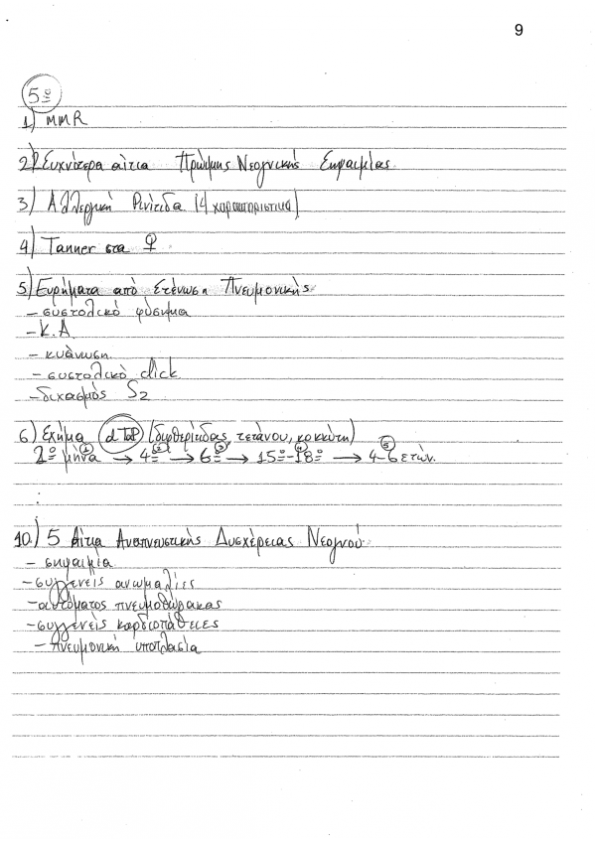 9
5ο
1) MMR
2) Συχνότερα αίτια Πρώιμης Νεογνικής Σηψαιμίας.
3) Αλλεργική Ρινίτιδα (4 χαρακτηριστικά)
4) Tanner στα ♀.
5) Ευρήματα από Στένωση Πνευμονικής
- συστολικό φύσημα
- Κ.Α
- κυάνωση.
- συστολικό click
- διχασμός S2
6) Σχήμα dTaP (διφθερίτιδας, τετάνου, κοκκύτη)
2ο μήνα ① → 4ο ② → 6ο ③ → 15ο-18ο ④ → 4-6 ετών. ⑤
:
10.) 5 Αίτια Αναπνευστικής Δυσχέρειας Νεογνού
- σηψαιμία
- συγγενείς ανωμαλίες
- αυτόματος πνευμοθώρακας
- συγγενείς καρδιοπάθειες
- πνευμονική υποπλασία